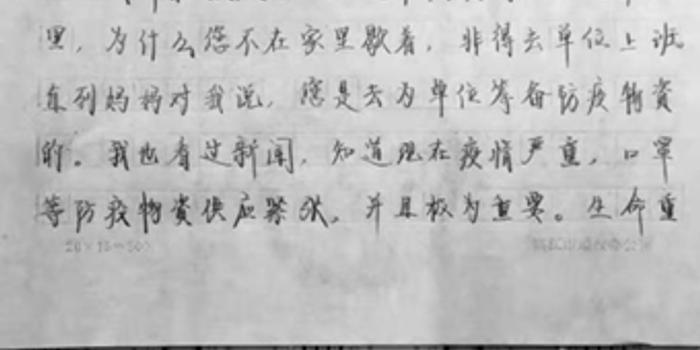 里，为什么您不在家里歇着，非得去单位上班
直到妈妈对我说，您是去为单位筹备防疫物资
的。我也看过新闻，知道现在疫情严重，口罩
等防疫物资供应紧张，并且极为重要。生命重
20×15=300